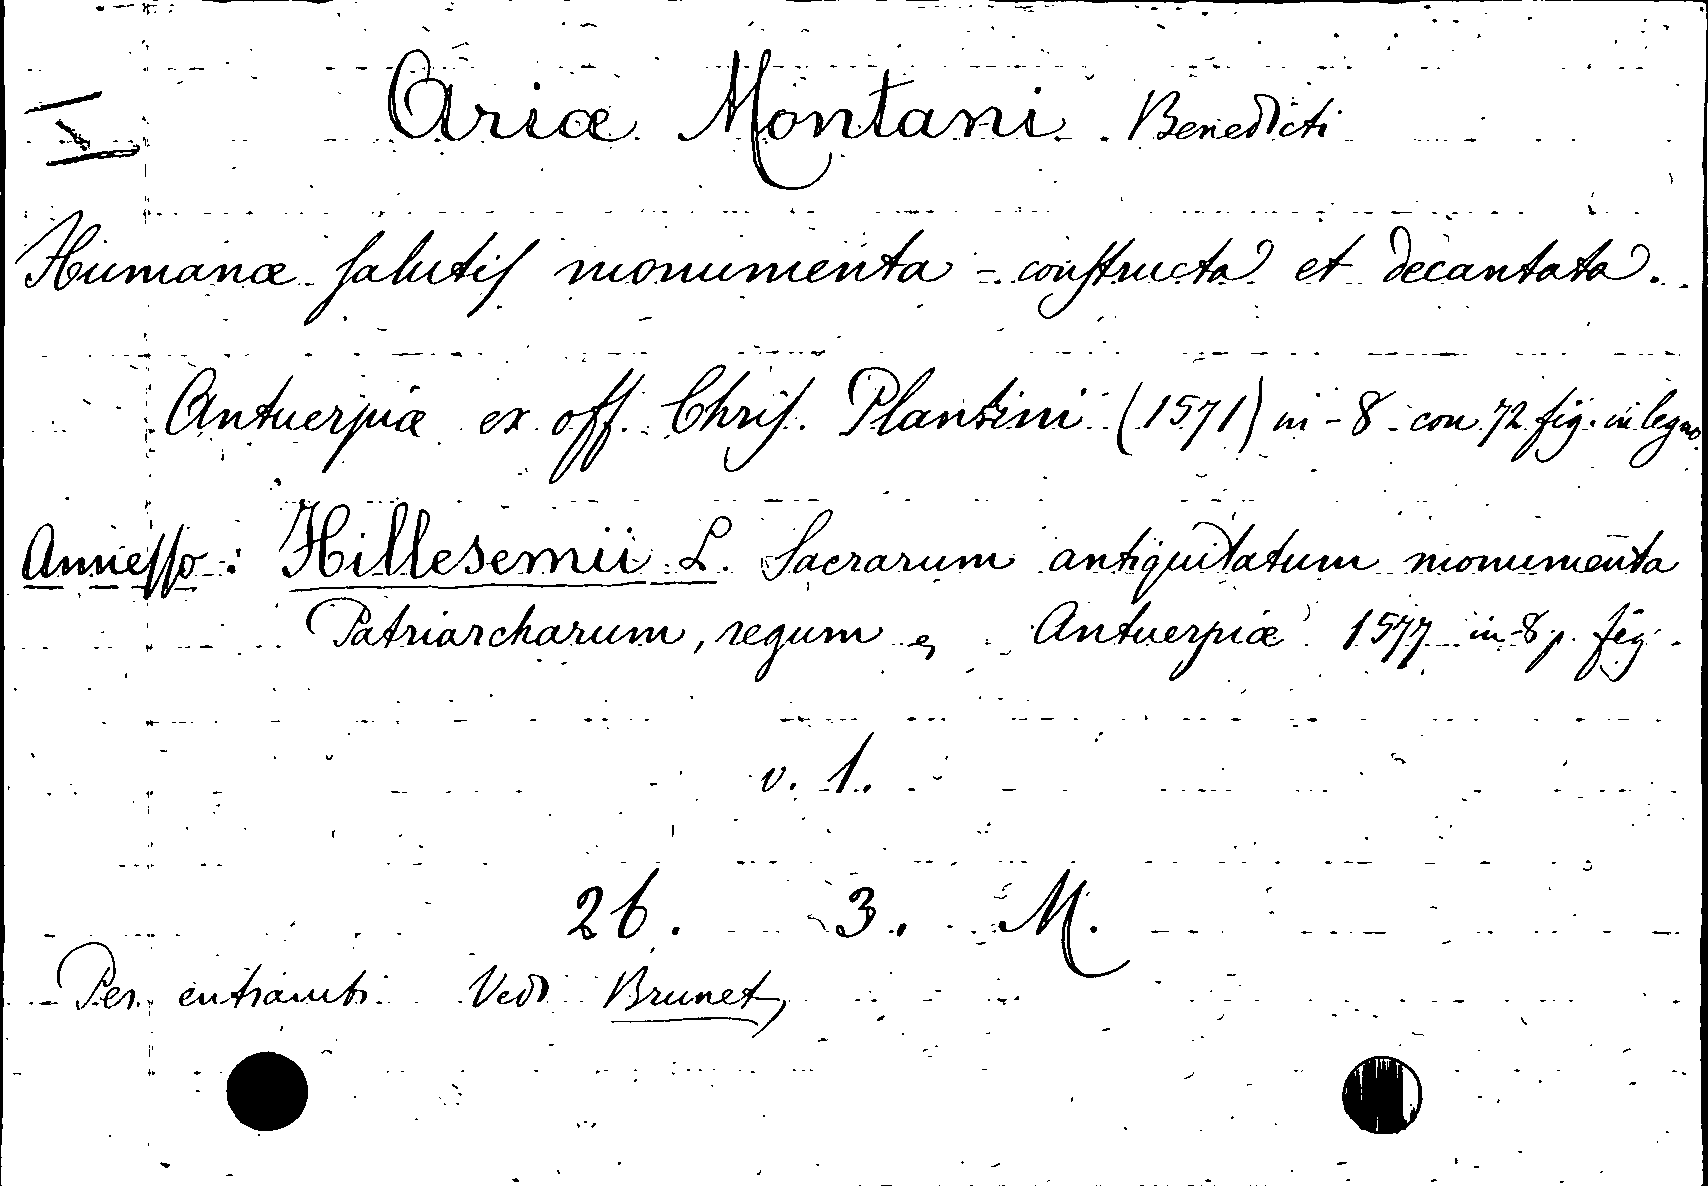 I
Ariæ Montani Benedicti
Humanæ salutis monumenta - constructa et decantata.
Antuerpiæ ex off. Chris. Plantini (1571) in-8 con 72 fig. in legno
Annesso: Hillesemii L. Sacrarum antiquitatum monumenta
Patriarcharum, regum Antuerpiæ 1577 in-8 p. fig.
v. 1.
26. 3. M.
Per entrambi Vedi Brunet,